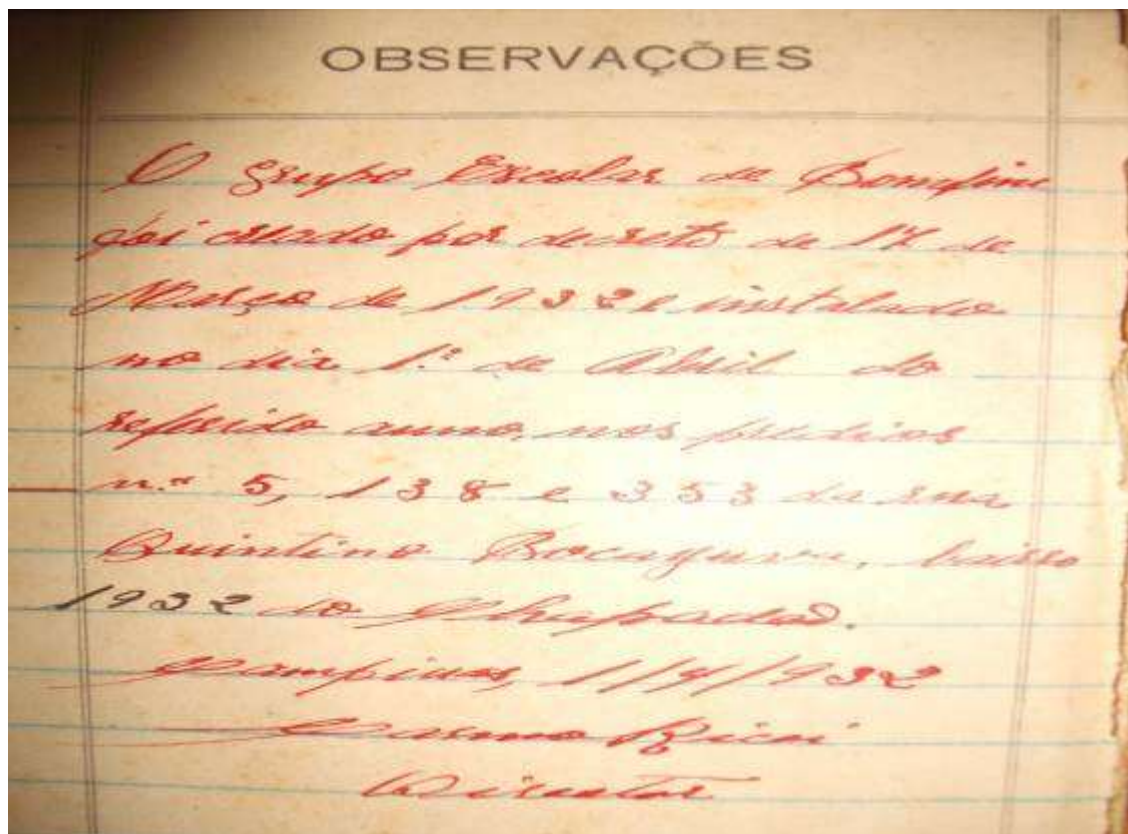 OBSERVAÇÕES
O grupo Escolar de Bomfim
foi creado por decreto de 17 de
Março de 1932 e instalado
no dia 1.º de Abril do
referido anno, nos predios
n.os 5, 138 e 353 da rua
Quintino Bocayuva, bairro
1932 do Chapadão.
Campinas, 1/4/1932
Carmo Ricci
Director